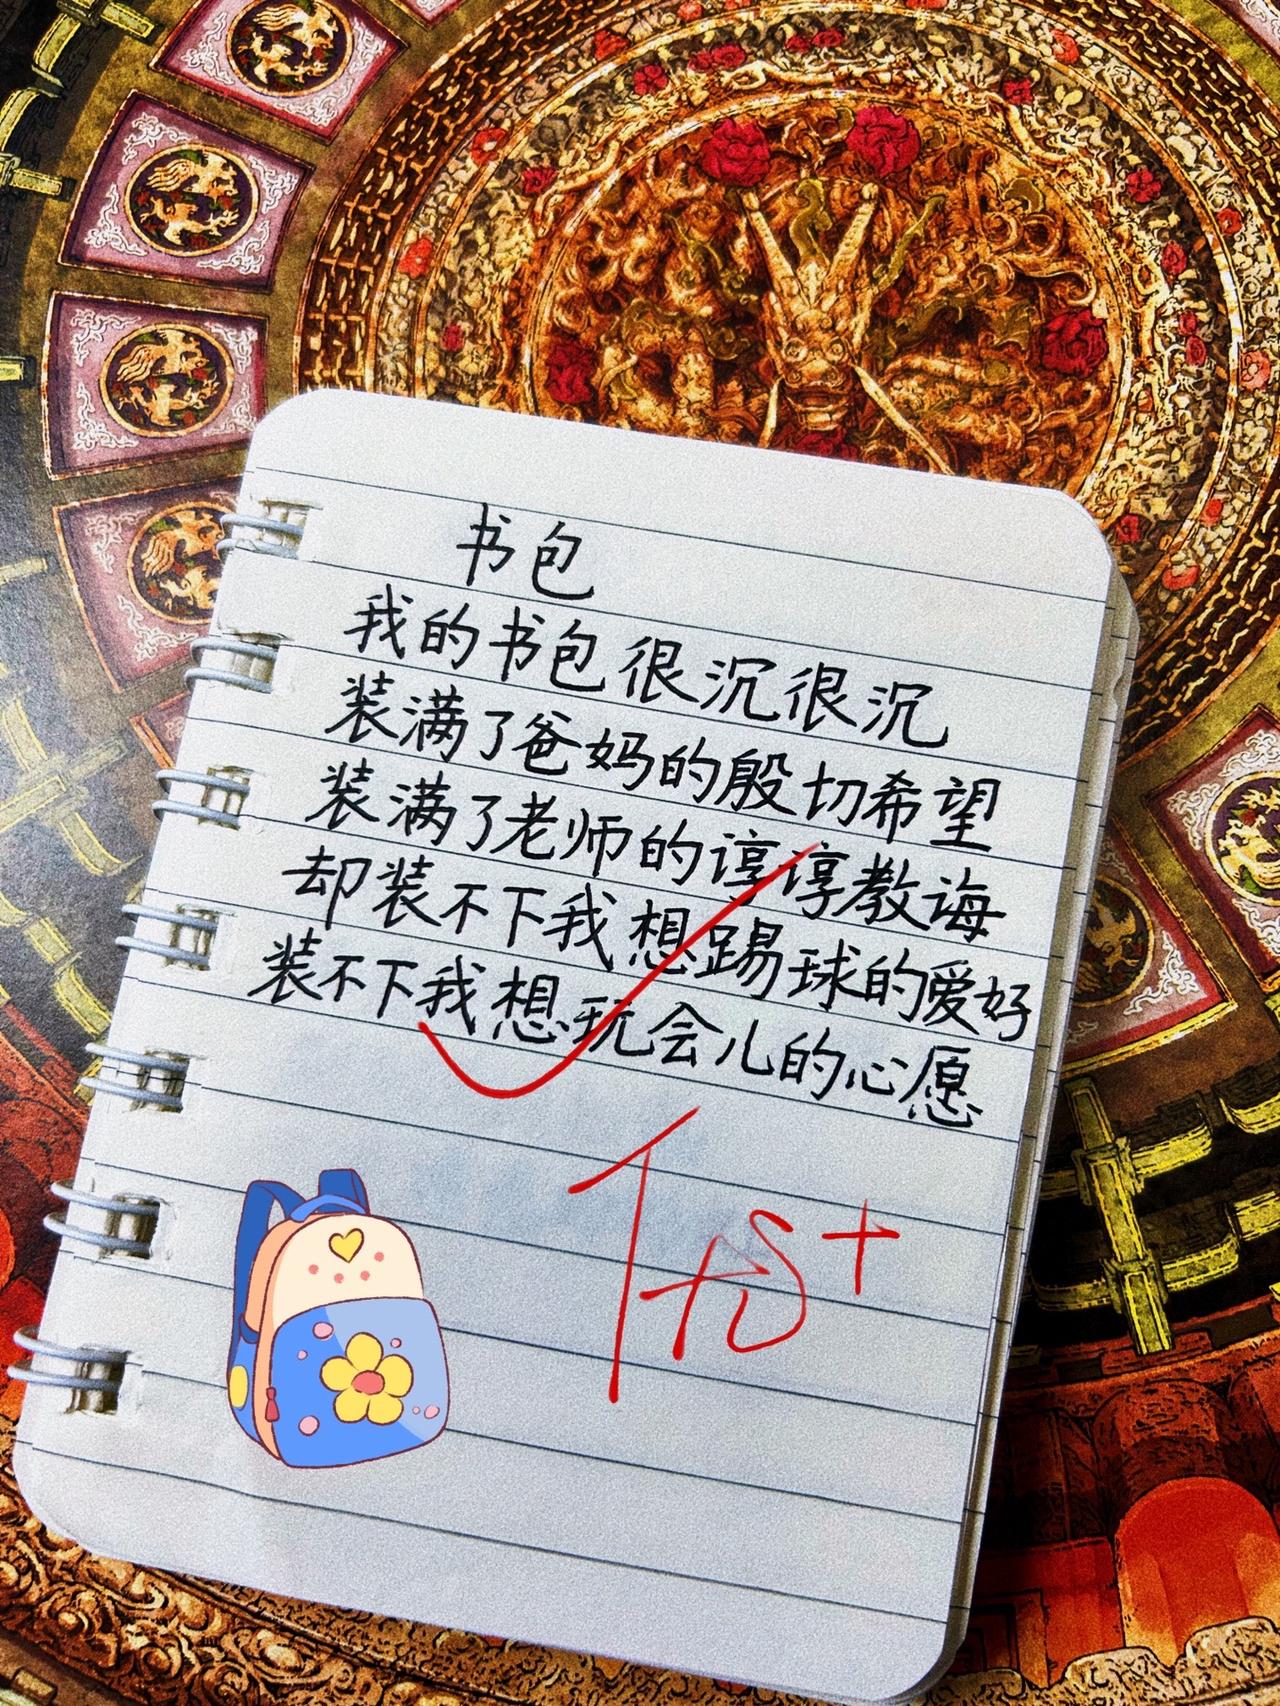 书包
我的书包很沉很沉
装满了爸妈的殷切希望
装满了老师的谆谆教诲
却装不下我想踢球的爱好
装不下我想玩会儿的心愿
优+